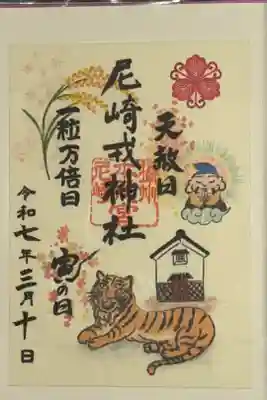 天赦日
尼崎戎神社
一粒万倍日
寅の日
令和七年三月十日